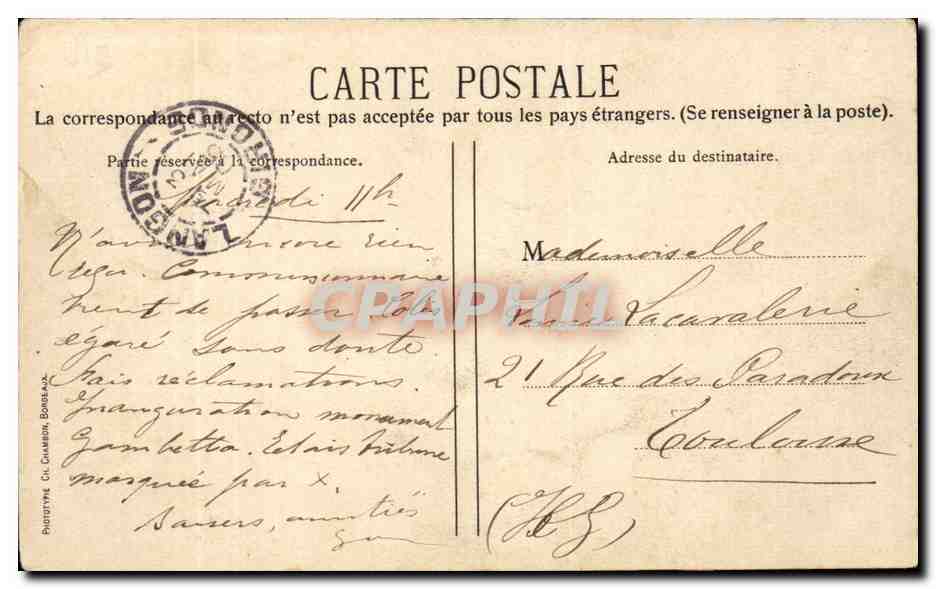 CARTE POSTALE
La correspondance au recto n'est pas acceptée par tous les pays étrangers. (Se renseigner à la poste).
Partie réservée à la correspondance.
Adresse du destinataire.
LANGON
11h
N'avais encore rien
reçu. Commissionnaire
vient de passer. Colis
égaré sans doute.
Fais réclamations.
Inauguration monument
Gambetta. Etais tribune
marquée par X.
Baisers, amitiés
Mademoiselle
Lacavalerie
21 Rue des Paradoux
Toulouse
(H G)
PHOTOTYPIE CH. CHAMBON, BORDEAUX
CPAPHIL